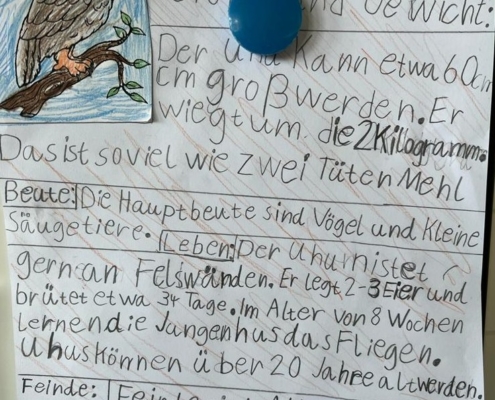 und Gewicht:
Der Uhu Kann etwa 60cm
cm groß werden. Er
wiegt um die 2Kilogramm.
Das ist soviel wie zwei Tüten Mehl
Beute: Die Hauptbeute sind Vögel und Kleine
Säugetiere. Leben: Der Uhu nistet
gern an Felswänden. Er legt 2-3 Eier und
brütet etwa 34 Tage. Im Alter von 8 Wochen
lernen die Jungenhus das Fliegen.
Uhus können über 20 Jahre alt werden.
Feinde: